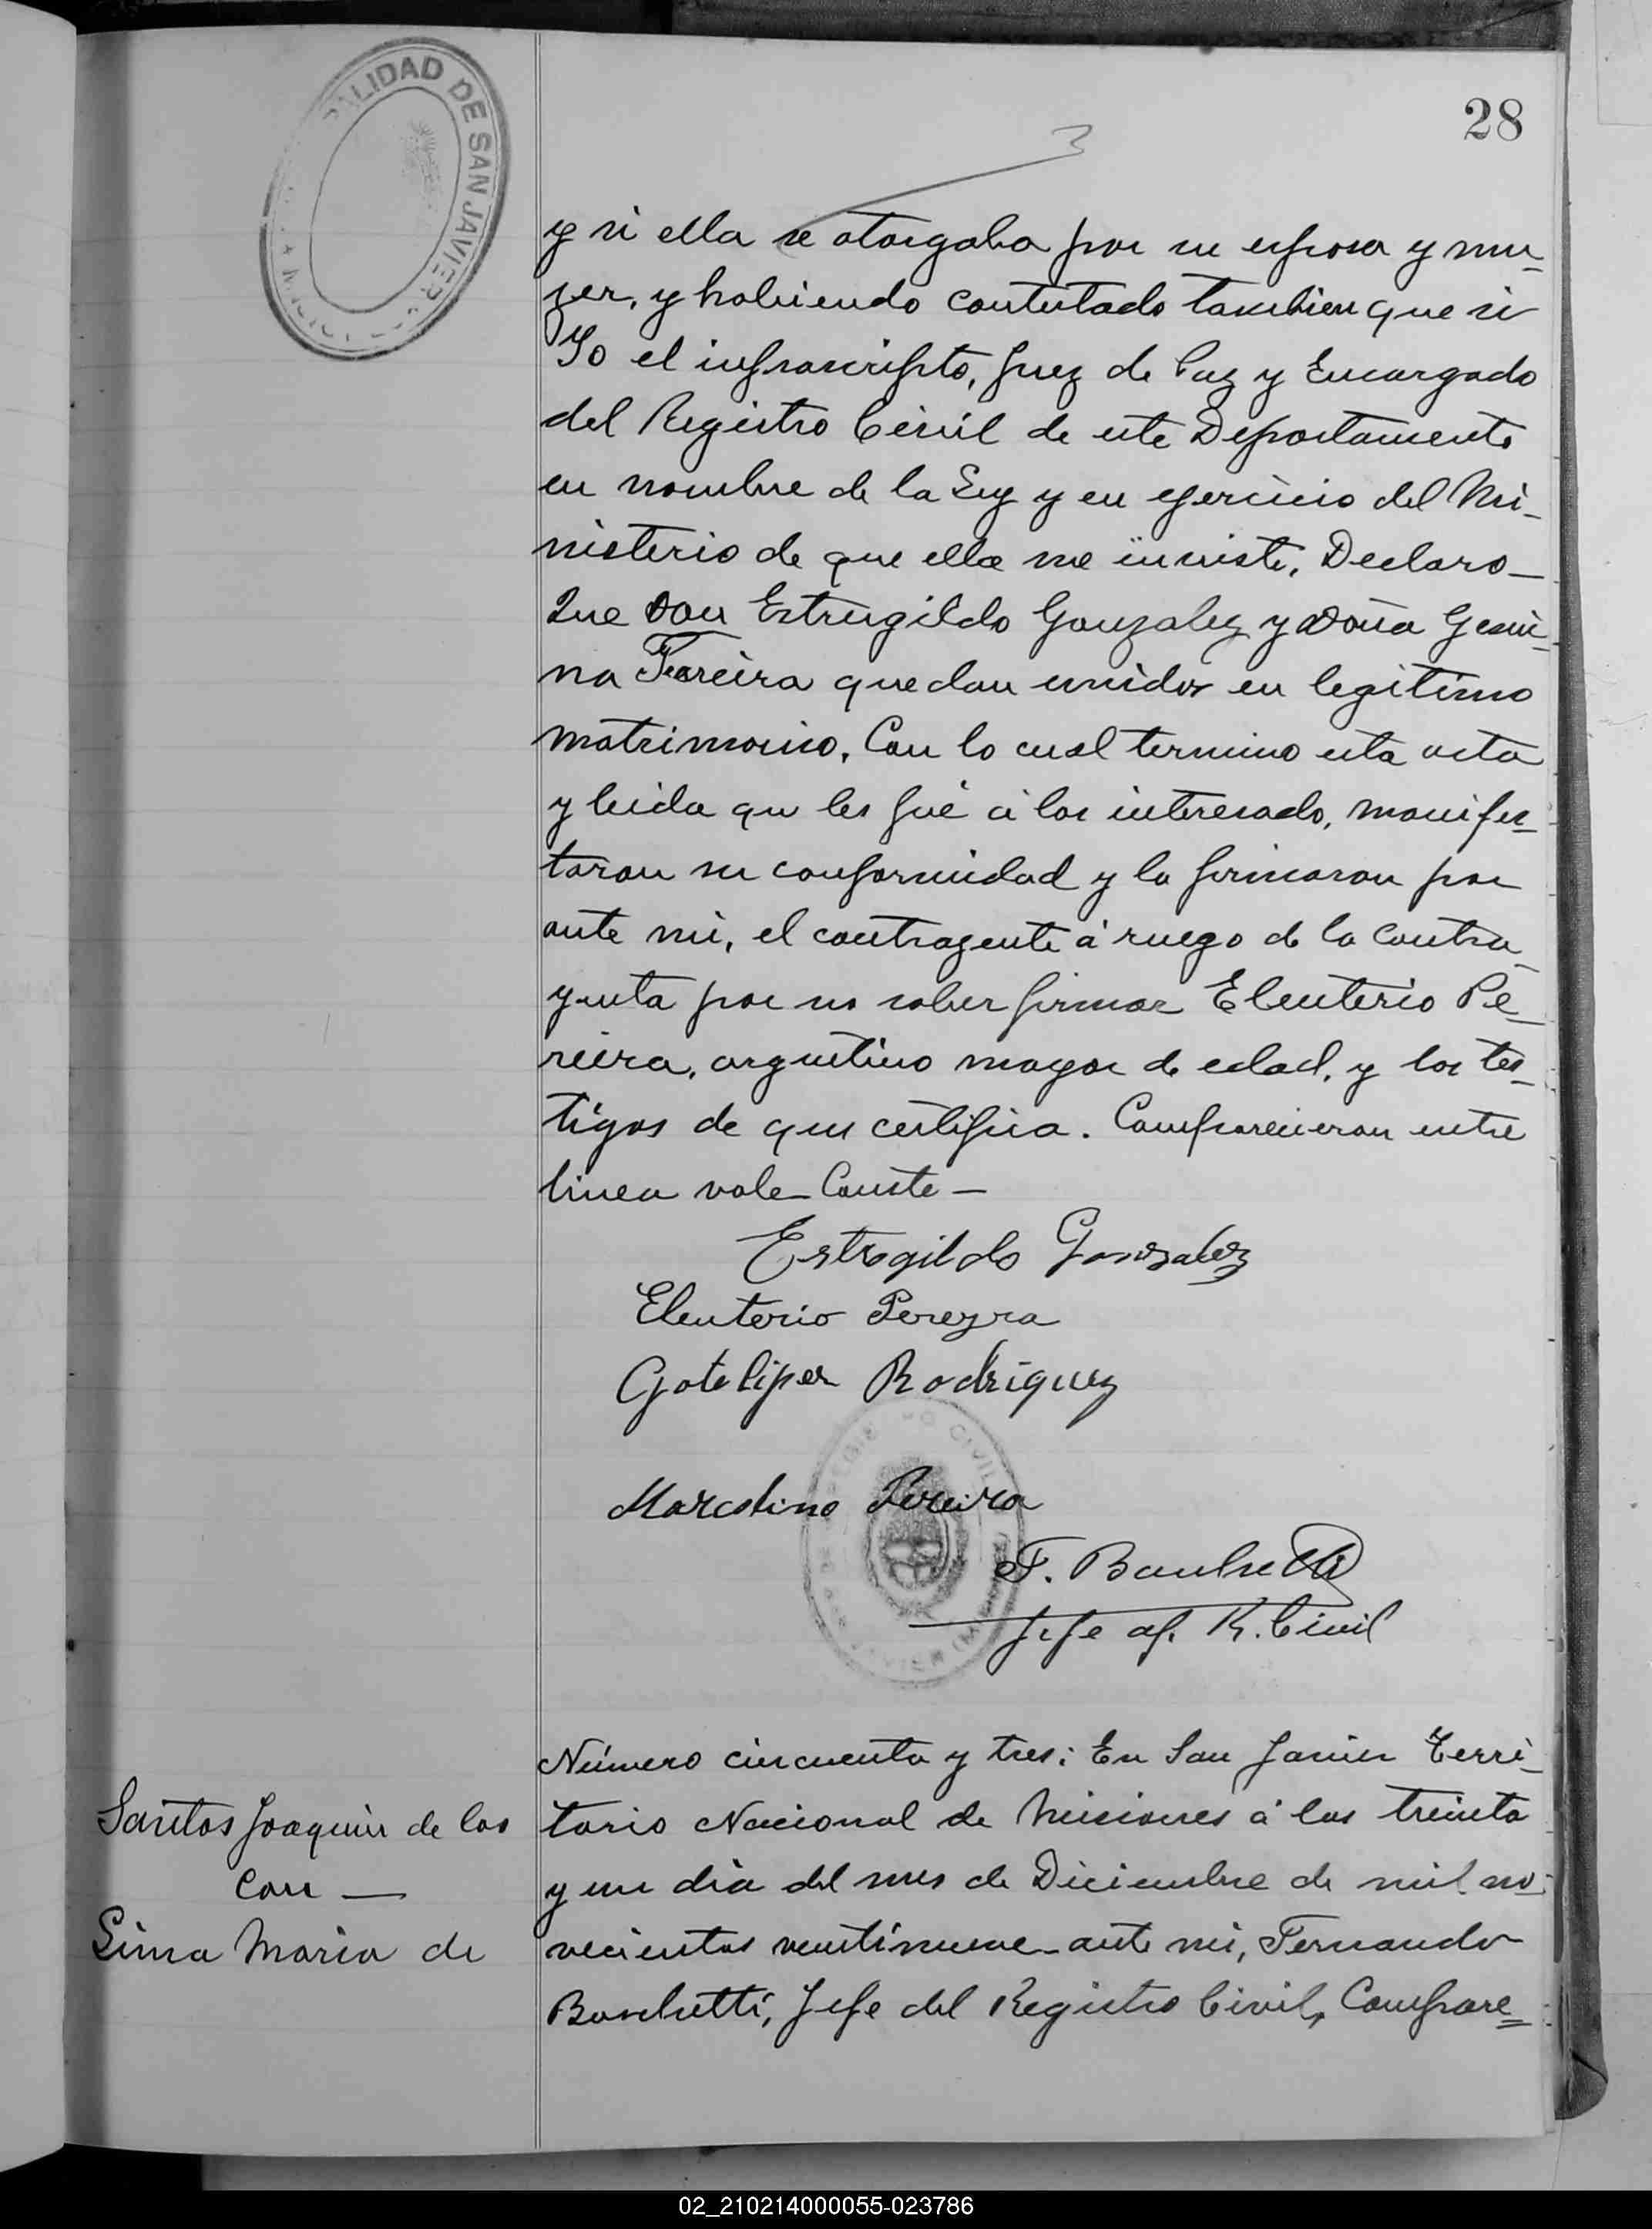 28
PALIDAD DE SAN JAVIER
y si ella se otorgaba por su esposa y mu_
jer, y habiendo contestado tambien que si
Yo el infrascripto, Juez de Paz y Encargado
del Registro Civil de este Departamento
en nombre de la Ley y en ejercicio del Mi_
nisterio de que ella me inviste, Declaro_
Que Don Estrugildo Gonzalez y Doña Gesui_
na Pereira quedan unidos en legitimo
matrimonio, Con lo cual termino esta acta
y leida qu les fué á los interesado, manifes_
taron su conformidad y la firmaron por
ante mi, el contragente á ruego de la contra_
yenta por no saber firmar Eleuterio Pe_
reira, argentino mayor de edad, y los tes_
tigos de que certifica. Comparecieron entre
linea vale_Conste_
Estrogildo Gonzalez
Eleuterio Pereyra
Rodriguez
Marcelino Pereira
CIVIL
Jefe of. R. Civil
Santos Joaquin de los
Con —
Lima Maria de
Número cincuenta y tres: En San Javier Terri_
torio Nacional de Misiones á los treinta
y un dia del mes de Diciembre de mil no_
vecientos veintinueve_ante mi, Fernando
Jefe del Registro Civil, Compare=
02_210214000055-023786